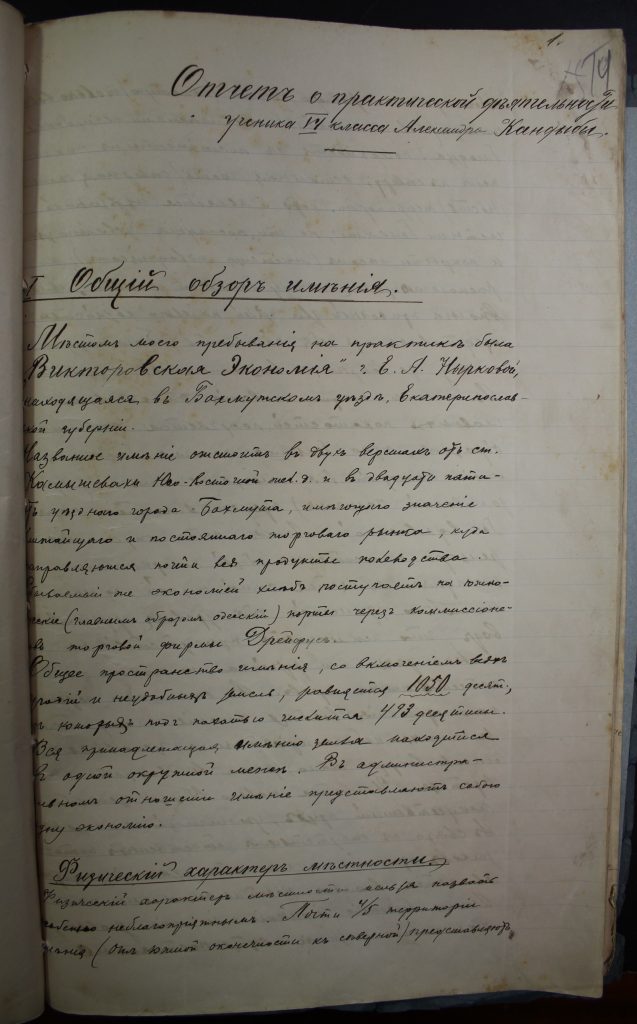 1.
Отчетъ о практической дѣятельности
ученика IV класса Александра Кандыбы.
I Общій обзоръ имѣнія.
Мѣстомъ моего пребыванія на практикѣ была
„Викторовская Экономія“ г. Е. А. Нырковой,
находящаяся въ Бахмутскомъ уѣздѣ, Екатеринослав-
кой губерніи.
Названное имѣніе отстоитъ въ двухъ верстахъ отъ ст.
Камышеваха Юго-Восточной жел. д. и въ двадцати пяти-
уѣзднаго города Бахмута, имѣющаго значеніе
ближайшаго и постояннаго торговаго рынка, куда
направляются почти всѣ продукты полеводства.
же экономіей хлѣбъ поступаетъ на южно-
скіе (главнымъ образомъ одесскій) порты черезъ коммиссіоне-
овъ торговой фирмы Дрейфусъ.
Общее пространство имѣнія, со включеніемъ всѣхъ
угодій и неудобныхъ земель, равняется 1050 десят.,
изъ которыхъ подъ пахатью числится 493 десятины.
Вся принадлежащая имѣнію земля находится
въ одной окружной межѣ. Въ администра-
ивномъ отношеніи имѣніе представляетъ собою
одну экономію.
Физическій характеръ мѣстности.
Физическій характеръ мѣстности нельзя назвать
особенно неблагопріятнымъ. Почти 4/5 территоріи
имѣнія ( южной оконечности къ сѣверной) представляютъ